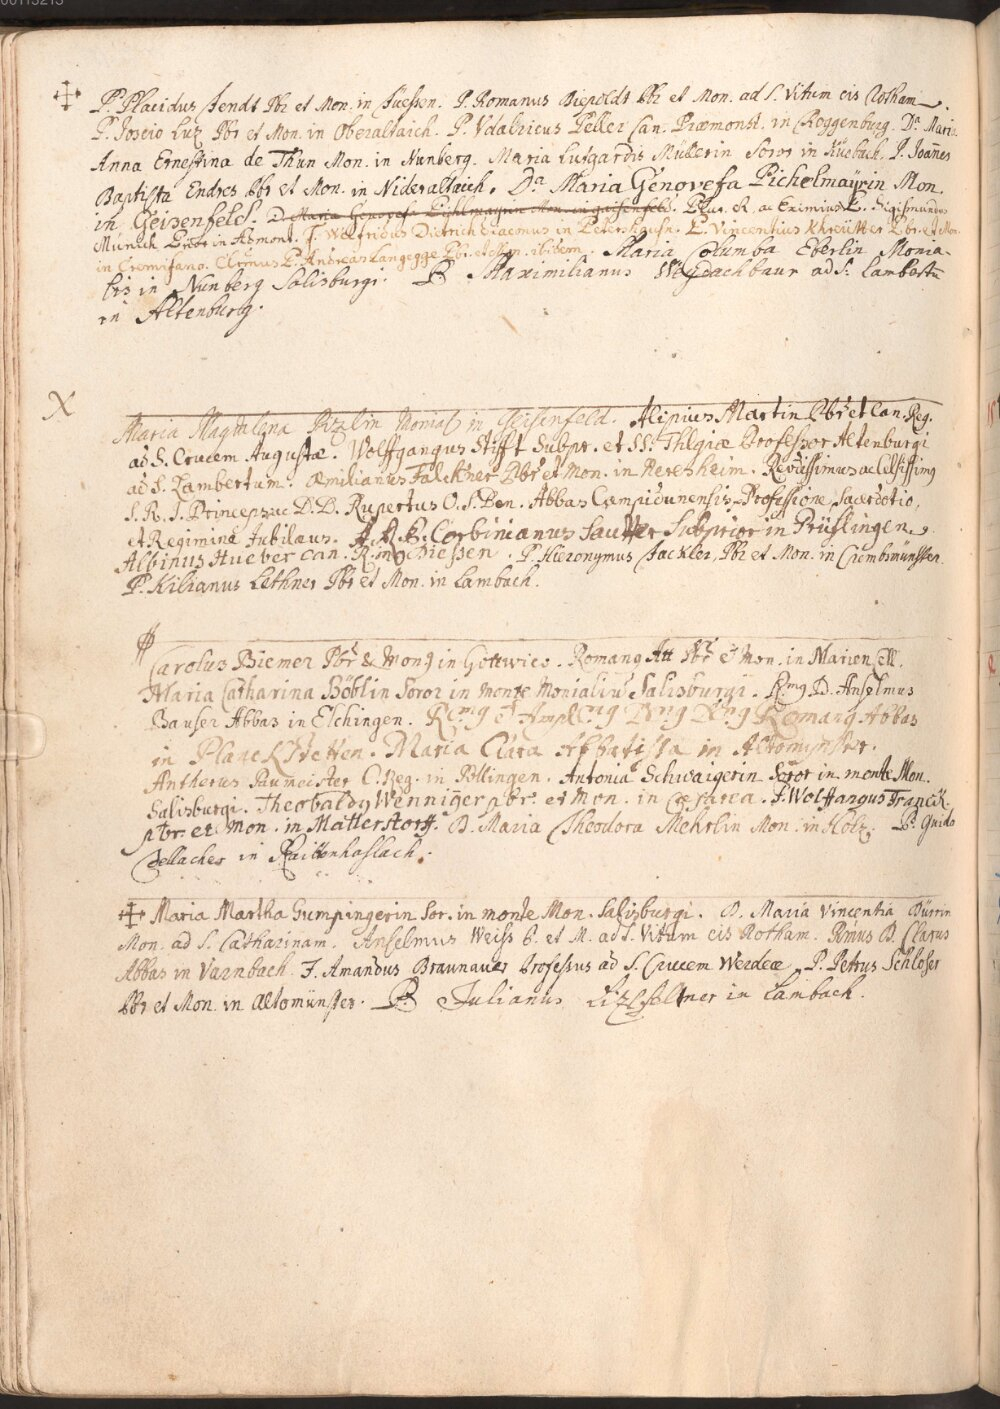 P. Placidus Jendt Pbr et Mon. in Füessen. P. Romanus Diepoldt Pbr et Mon. ad S. Vitum cis Rotham.
P. Joscio Luz Pbr et Mon. in Oberaltaich. P. Vdalricus Peller Can. Præmonst. in Roggenburg. Da. Maria
Anna Ernestina de Thun Mon. in Nunberg. Maria Lutgardis Müllerin Soror in Küebach. P. Joañes
Baptista Endres Pbr et Mon. in Nideraltaich. Da. Maria Genovefa Pichelmayrin Mon.
in Geisenfeld. D. Maria Genovefa Pihlmayrin Mon. in gaisenfeld. Plur. R. ac Eximius P. Sigismundus
Muenich in Admont. F. Wilfridus Dietrich Diaconus in Petershusn. P. Vincentius Khreütter Pbr. et Mon.
in Cremifano. Clrimus P. Andreas Langegge Pbr. et Mon. ibidem. Maria Columba Eberlin Monia-
lis in Nunberg Salisburgi. P. Maximilianus Weydachbaur ad S. Lambertū
in Altenburg.
X
Maria Magdalena Rizlin Monial. in Geisenfeld. Alipius Martin Pbr et Can. Reg.
ad S. Crucem Augustæ. Wolffgangus Stifft Subpr. et SS. Thlgiæ Professor Altenburgi
ad S. Lambertum. Æmilianus Falckner Pbr et Mon. in Neresheim. Revdissimus ac Celsissimus
S. R. I. Princeps ac D. D. Rupertus O. S. Ben. Abbas Campidunensis Professione, Sacerdotio,
et Regimine Jubilæus. A. R. P. Corbinianus Sautter Subprior in Prüflingen.
Albinus Hueber can. R. in Diessen. P. Hieronymus Jackler, Pbr et Mon. in Crembsmünster.
P. Kilianus Lethner Pbr et Mon. in Lambach.
Carolus Biemer Pbr & Mon9 in Gottwico. Roman9 Att Pbr & Mon. in Marien Cell.
Maria Catharina Böblin Soror in monte Monialiū Salisburgi. Rm9 D. Anselmus
Bauser Abbas in Elchingen. Rm9 et Ampl.m9 Dn9 Dn9 Roman9 Abbas
in Planckstetten. Maria Clara in Altomynster.
Antherus Paumeister C. Reg. in Pollingen. Antonia Schwaigerin Soror in monte Mon.
Salisburgi. Theobald9 Wenninger pbr. et Mon. in Cæsarea. F. Wolffangus Franck
pbr. et Mon. in Matterstorff. D. Maria Theodora Mehrlin Mon. in Holz. P. Guido
Zellacher in Raittenhaslach.
Maria Martha Gumpingerin Sor. in monte Mon. Salisburgi. D. Maria Vincentia Dürrin
Mon. ad S. Catharinam. Anselmus Weiss P. et M. ad S. Vitum cis Rotham. Rmus D. Clarus
Abbas in Varnbach. F. Amandus Braunauer Professus ad S. Crucem Werdeæ. P. Petrus Schloser
Pbr et Mon. in Altomünster. P. Julianus in Lambach.